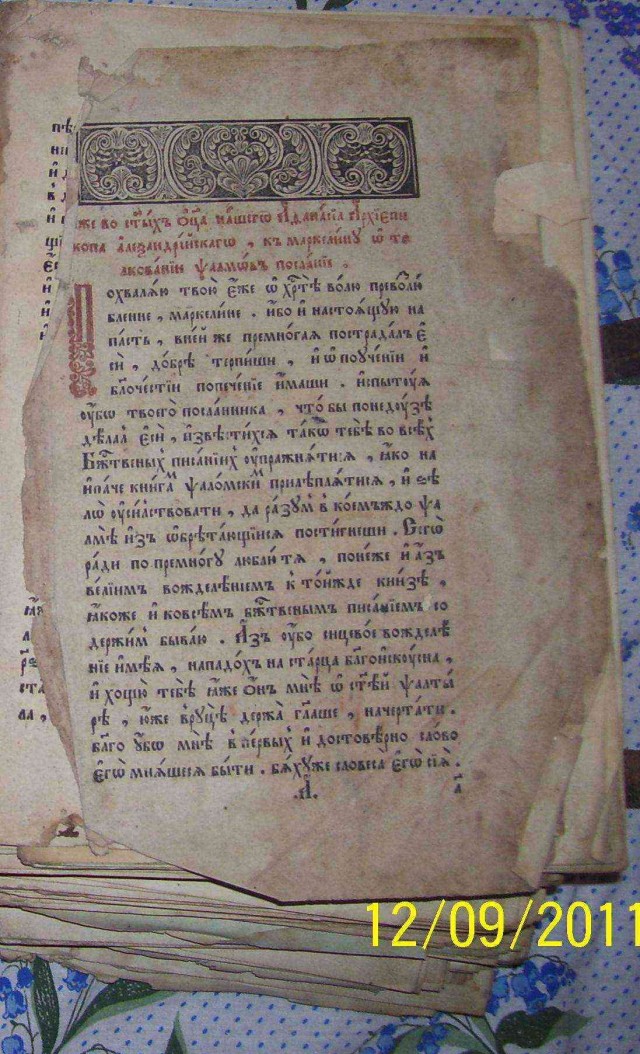 пѣ
ни
и҆же во ст҃ы́хъ ѻ҆ц҃а на́шегѡ а҆ѳана́сїа а҆рхїепи
копа а҆леѯандрі́йскагѡ , къ маркели́ну ѡ҆ то
лкова́нїи ѱалмѡ́въ посла́нїе .
Похвалѧ́ю твою̀ е҆́же ѡ҆ хрⷭ҇тѣ̀ во́лю превозлю́
бленне , маркели́не . и҆́бо и҆ настоѧ́щꙋю на
па́сть , в̾не́й же премно́гаѧ пострада́лъ є҆
сѝ , до́брѣ терпи́ши , и҆ ѡ҆ поꙋче́нїи и҆
бл҃гоче́стїи попече́нїе и҆́маши . и҆спытꙋ́ѧ
ᲂу҆́бѡ твоего̀ посла́нника , что́ бы по недꙋ́зѣ
дѣ́лалъ є҆сѝ , и҆звѣсти́хсѧ та́кѡ тебѣ̀ во всѣ́хъ
Бж҃твенныхъ писа́нїихъ ᲂу҆пражнѧ́тисѧ , ꙗ҆́ко на
и҆па́че кни́гамъ ѱало́мскимъ прилѣплѧ́тисѧ , и҆ ѕѣ
лѡ̀ ᲂу҆си́лствовати , да ра́зꙋмъ в ко́емъждо ѱа
лмѣ̀ и҆зъ ѡ҆брѣта́ющїйсѧ пости́гнеши . Сегѡ̀
ра́ди по премно́гꙋ люблю́ тѧ , поне́же и҆ а҆́зъ
ве́лїимъ вожделѣ́нїемъ к то́йжде кни́зѣ ,
ꙗ҆́коже и҆ ко всѣ́мъ бж҃твеннымъ писа́нїемъ со
держи́мъ быва́ю . А҆́зъ ᲂу҆́бо сицево́е вожделѣ́
нїе и҆мѣ́ѧ , напа́дохъ на ста́рца бл҃гоискꙋ́сна ,
и҆ хощꙋ̀ тебѣ̀ ꙗ҆̀же ѻ҆́нъ мнѣ̀ ѡ҆ ст҃ѣ́й ѱалты́
рѣ , ю҆́же в̾рꙋцѣ̀ держа̀ гл҃аше , начерта́ти .
бл҃го ᲂу҆́бѡ мнѣ̀ в̾пе́рвыхъ и҆ достовѣ́рно сло́во
є҆гѡ̀ мнѧ́шесѧ бы́ти . бѧ́хꙋ же словеса̀ є҆гѡ̀ сїѧ̀ .
.а҃. а҃
12/09/2011